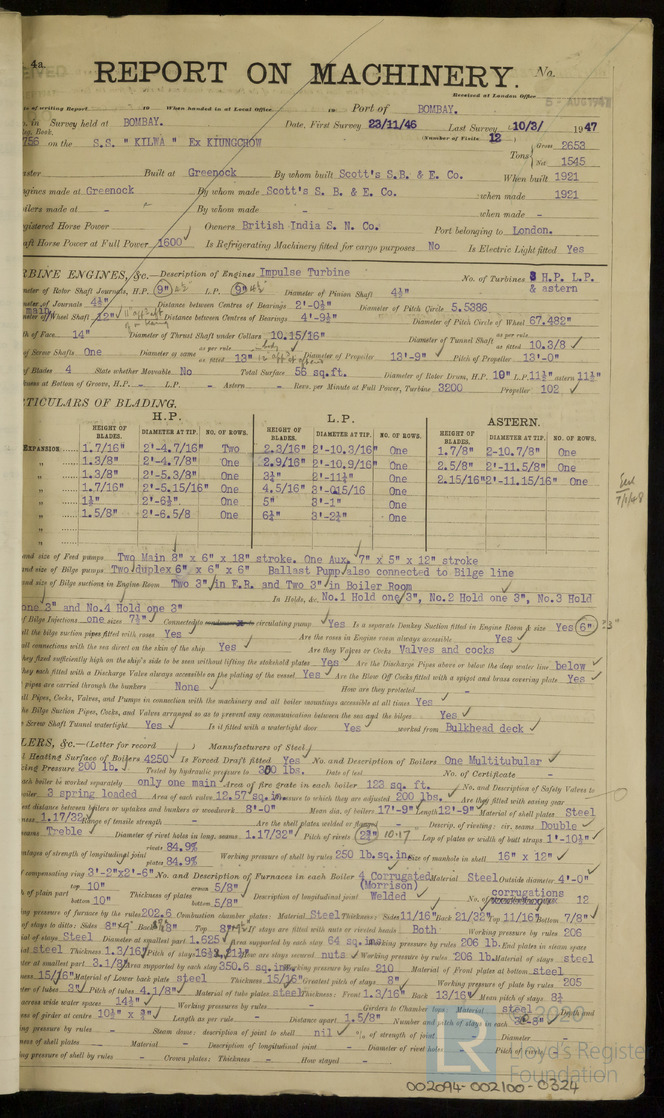 4a.
REPORT ON MACHINERY. No.
Received at London Office
5 - AUG 1947
of writing Report 19 When handed in at Local Office 19 Port of BOMBAY.
in Survey held at BOMBAY. Date, First Survey 23/11/46 Last Survey 10/3/ 1947
Reg. Book. (Number of Visits 12 )
756 on the S.S. " KILWA " Ex KIUNGCHOW
Tons Gross 2653
Net 1545
Built at Greenock By whom built Scott's S.B. & E. Co. When built 1921
Engines made at Greenock By whom made Scott's S. B. & E. Co. when made 1921
Boilers made at - By whom made - when made -
Registered Horse Power Owners British India S. N. Co. Port belonging to London.
Shaft Horse Power at Full Power 1600 Is Refrigerating Machinery fitted for cargo purposes No Is Electric Light fitted Yes
TURBINE ENGINES, &c.—Description of Engines Impulse Turbine No. of Turbines 3 H.P. L.P. & astern
Diameter of Rotor Shaft Journals, H.P. 9" L.P. 9" Diameter of Pinion Shaft 4½"
Diameter of Journals 4½" Distance between Centres of Bearings 2'-0½" Diameter of Pitch Circle 5.5386
main Wheel Shaft 12" Distance between Centres of Bearings 4'-9½" Diameter of Pitch Circle of Wheel 67.482"
of Face 14" Diameter of Thrust Shaft under Collars 10.15/16" Diameter of Tunnel Shaft as per rule as fitted 10.3/8
of Screw Shafts One Diameter of same as per rule as fitted 13" Diameter of Propeller 13'-9" Pitch of Propeller 13'-0"
of Blades 4 State whether Moveable No Total Surface 56 sq.ft. Diameter of Rotor Drum, H.P. 10" L.P. 11½" astern 11½"
Thickness at Bottom of Groove, H.P. - L.P. - Astern - Revs. per Minute at Full Power, Turbine 3200 Propeller 102
PARTICULARS OF BLADING.
H.P. L.P. ASTERN.
HEIGHT OF BLADES. DIAMETER AT TIP. NO. OF ROWS. HEIGHT OF BLADES. DIAMETER AT TIP. NO. OF ROWS. HEIGHT OF BLADES. DIAMETER AT TIP. NO. OF ROWS.
EXPANSION 1.7/16" 2'-4.7/16" Two 2.3/16" 2'-10.3/16" One 1.7/8" 2-10.7/8" One
" 1.3/8" 2'-4.7/8" One 2.9/16" 2'-10.9/16" One 2.5/8" 2'-11.5/8" One
" 1.3/8" 2'-5.3/8" One 3¼" 2'-11¼" One 2.15/16" 2'-11.15/16" One
" 1.7/16" 2'-5.15/16" One 4.5/16" 3'-015/16 One
" 1½" 2'-6½" One 5" 3'-1" One
" 1.5/8" 2'-6.5/8 One 6¼" 3'-2¼" One
and size of Feed pumps Two Main 8" x 6" x 18" stroke. One Aux. 7" x 5" x 12" stroke
and size of Bilge pumps Two duplex 6" x 6" x 6" Ballast Pump also connected to Bilge line
and size of Bilge suctions in Engine Room Two 3" in E.R. and Two 3" in Boiler Room
In Holds, &c. No.1 Hold one 3", No.2 Hold one 3", No.3 Hold
one 3" and No.4 Hold one 3"
of Bilge Injections one sizes 7½" Connected to circulating pump Yes Is a separate Donkey Suction fitted in Engine Room & size Yes 6"
all the bilge suction pipes fitted with roses Yes Are the roses in Engine room always accessible Yes
all connections with the sea direct on the skin of the ship Yes Are they Valves or Cocks Valves and cocks
they fixed sufficiently high on the ship's side to be seen without lifting the stokehold plates Yes Are the Discharge Pipes above or below the deep water line below
they each fitted with a Discharge Valve always accessible on the plating of the vessel Yes Are the Blow Off Cocks fitted with a spigot and brass covering plate Yes
pipes are carried through the bunkers None How are they protected -
all Pipes, Cocks, Valves, and Pumps in connection with the machinery and all boiler mountings accessible at all times Yes
the Bilge Suction Pipes, Cocks, and Valves arranged so as to prevent any communication between the sea and the bilges Yes
Screw Shaft Tunnel watertight Yes Is it fitted with a watertight door Yes worked from Bulkhead deck
BOILERS, &c.—(Letter for record ) Manufacturers of Steel
Heating Surface of Boilers 4250 Is Forced Draft fitted Yes No. and Description of Boilers One Multitubular
Working Pressure 200 lb. Tested by hydraulic pressure to 300 lbs. Date of test No. of Certificate -
each boiler be worked separately only one main Area of fire grate in each boiler 123 sq. ft. No. and Description of Safety Valves to
boiler 3 spring loaded Area of each valve 12.57 sq.in. Pressure to which they are adjusted 200 lbs. Are they fitted with easing gear
distance between boilers or uptakes and bunkers or woodwork 8'-0" Mean dia. of boilers 17'-9" Length 12'-9" Material of shell plates Steel
1.17/32 Range of tensile strength - Are the shell plates welded or flanged - Descrip. of riveting: cir. seams Double
Treble Diameter of rivet holes in long. seams 1.17/32" Pitch of rivets 10.17 Lap of plates or width of butt straps 1'-10½"
percentages of strength of longitudinal joint rivets 84.9% plates 84.9% Working pressure of shell by rules 250 lb.sq.in. Size of manhole in shell 16" x 12"
compensating ring 3'-2"x2'-6" No. and Description of Furnaces in each boiler 4 Corrugated (Morrison) Material Steel Outside diameter 4'-0"
of plain part top 10" bottom 10" Thickness of plates crown 5/8" bottom 5/8" Description of longitudinal joint Welded No. of corrugations 12
Working pressure of furnace by the rules 202.6 Combustion chamber plates: Material Steel Thickness: Sides 11/16" Back 21/32" Top 11/16" Bottom 7/8"
of stays to ditto: Sides 8" Back Top If stays are fitted with nuts or riveted heads Both Working pressure by rules 206
of stays Steel Diameter at smallest part 1.625 Area supported by each stay 64 sq. Working pressure by rules 206 lb. End plates in steam space
steel Thickness 1.3/16" Pitch of stays How are stays secured nuts Working pressure by rules 206 lb. Material of stays steel
at smallest part 3.1/8" Area supported by each stay 350.6 sq.in. Working pressure by rules 210 Material of Front plates at bottom steel
15/16" Material of Lower back plate steel Thickness 15/16" Greatest pitch of stays 8" Working pressure of plate by rules 205
of tubes 3" Pitch of tubes 4.1/8" Material of tube plates steel Thickness: Front 1.3/16" Back 13/16" Mean pitch of stays 8¼
across wide water spaces 14½" Working pressures by rules - Girders to Chamber tops: Material steel Depth and
of girder at centre 10½" x ¾" Length as per rule - Distance apart 1.5/8" Number and pitch of stays in each
Working pressure by rules - Steam dome: description of joint to shell nil % of strength of joint - Diameter -
of shell plates - Material - Description of longitudinal joint - Diameter of rivet holes - Pitch of rivets -
Working pressure of shell by rules - Crown plates: Thickness - How stayed -
© 2020
Lloyd's Register
Foundation
002094-002100-0324